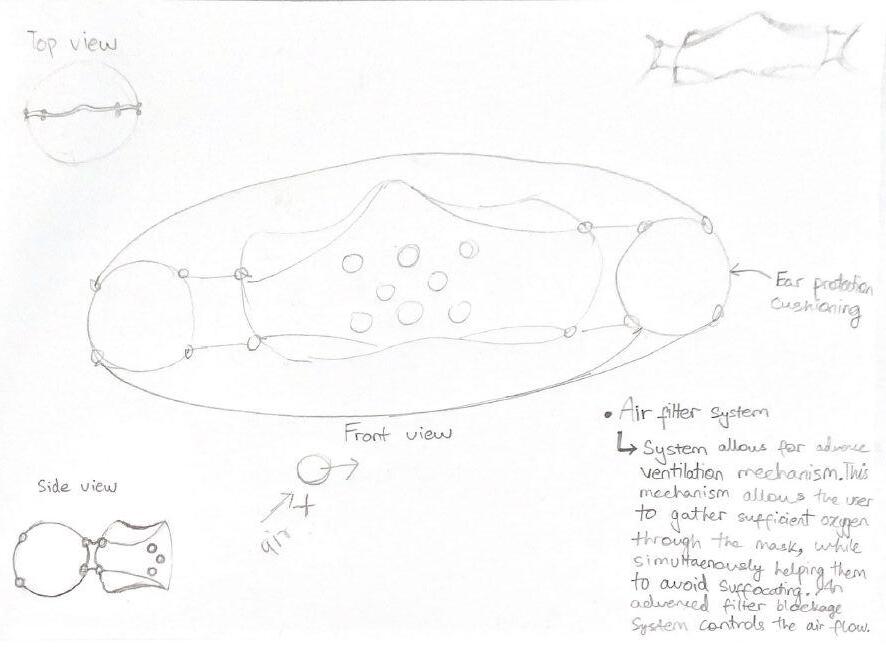 Top view
Ear protection
cushioning
Front view
• Air filter system
↳ System allows for advance
ventilation mechanism. This
mechanism allows the user
to gather sufficient oxygen
through the mask, while
simultaenously helping them
to avoid suffocating. An
advenced filter blockage
system controls the air flow.
Side view
air
+